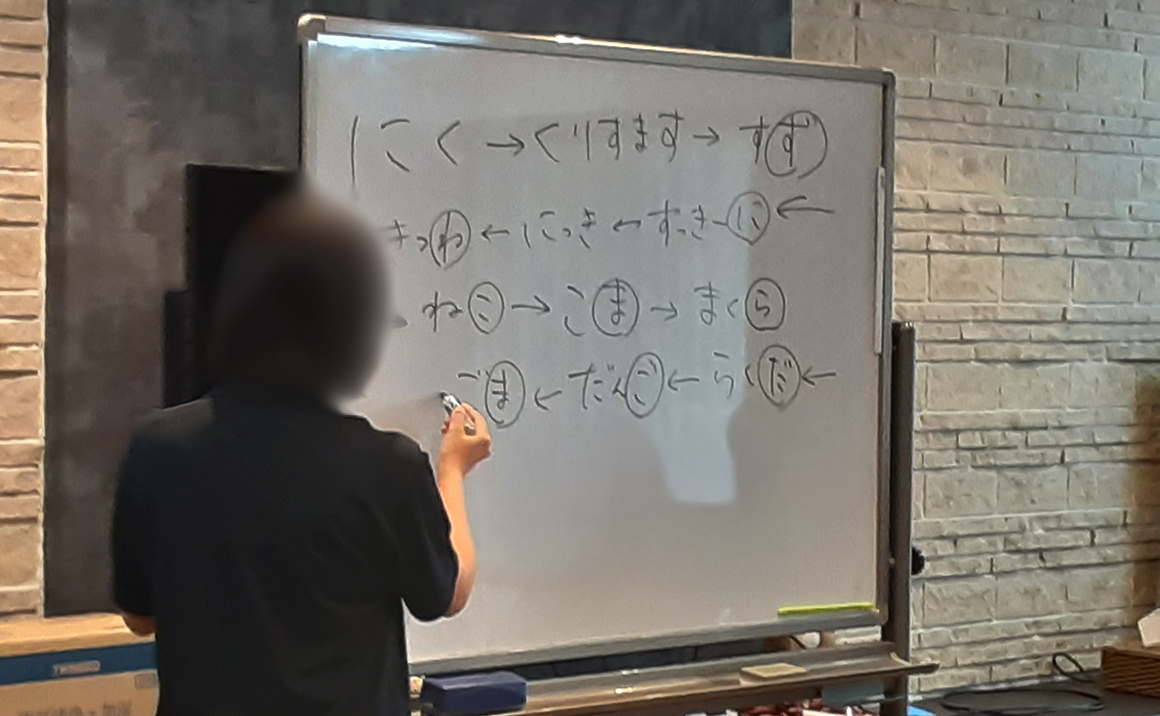 にく→くりすます→すず
きつね←にっき←すっきーに←
ねこ→こま→まくら
ごま←だんご←らくだ←